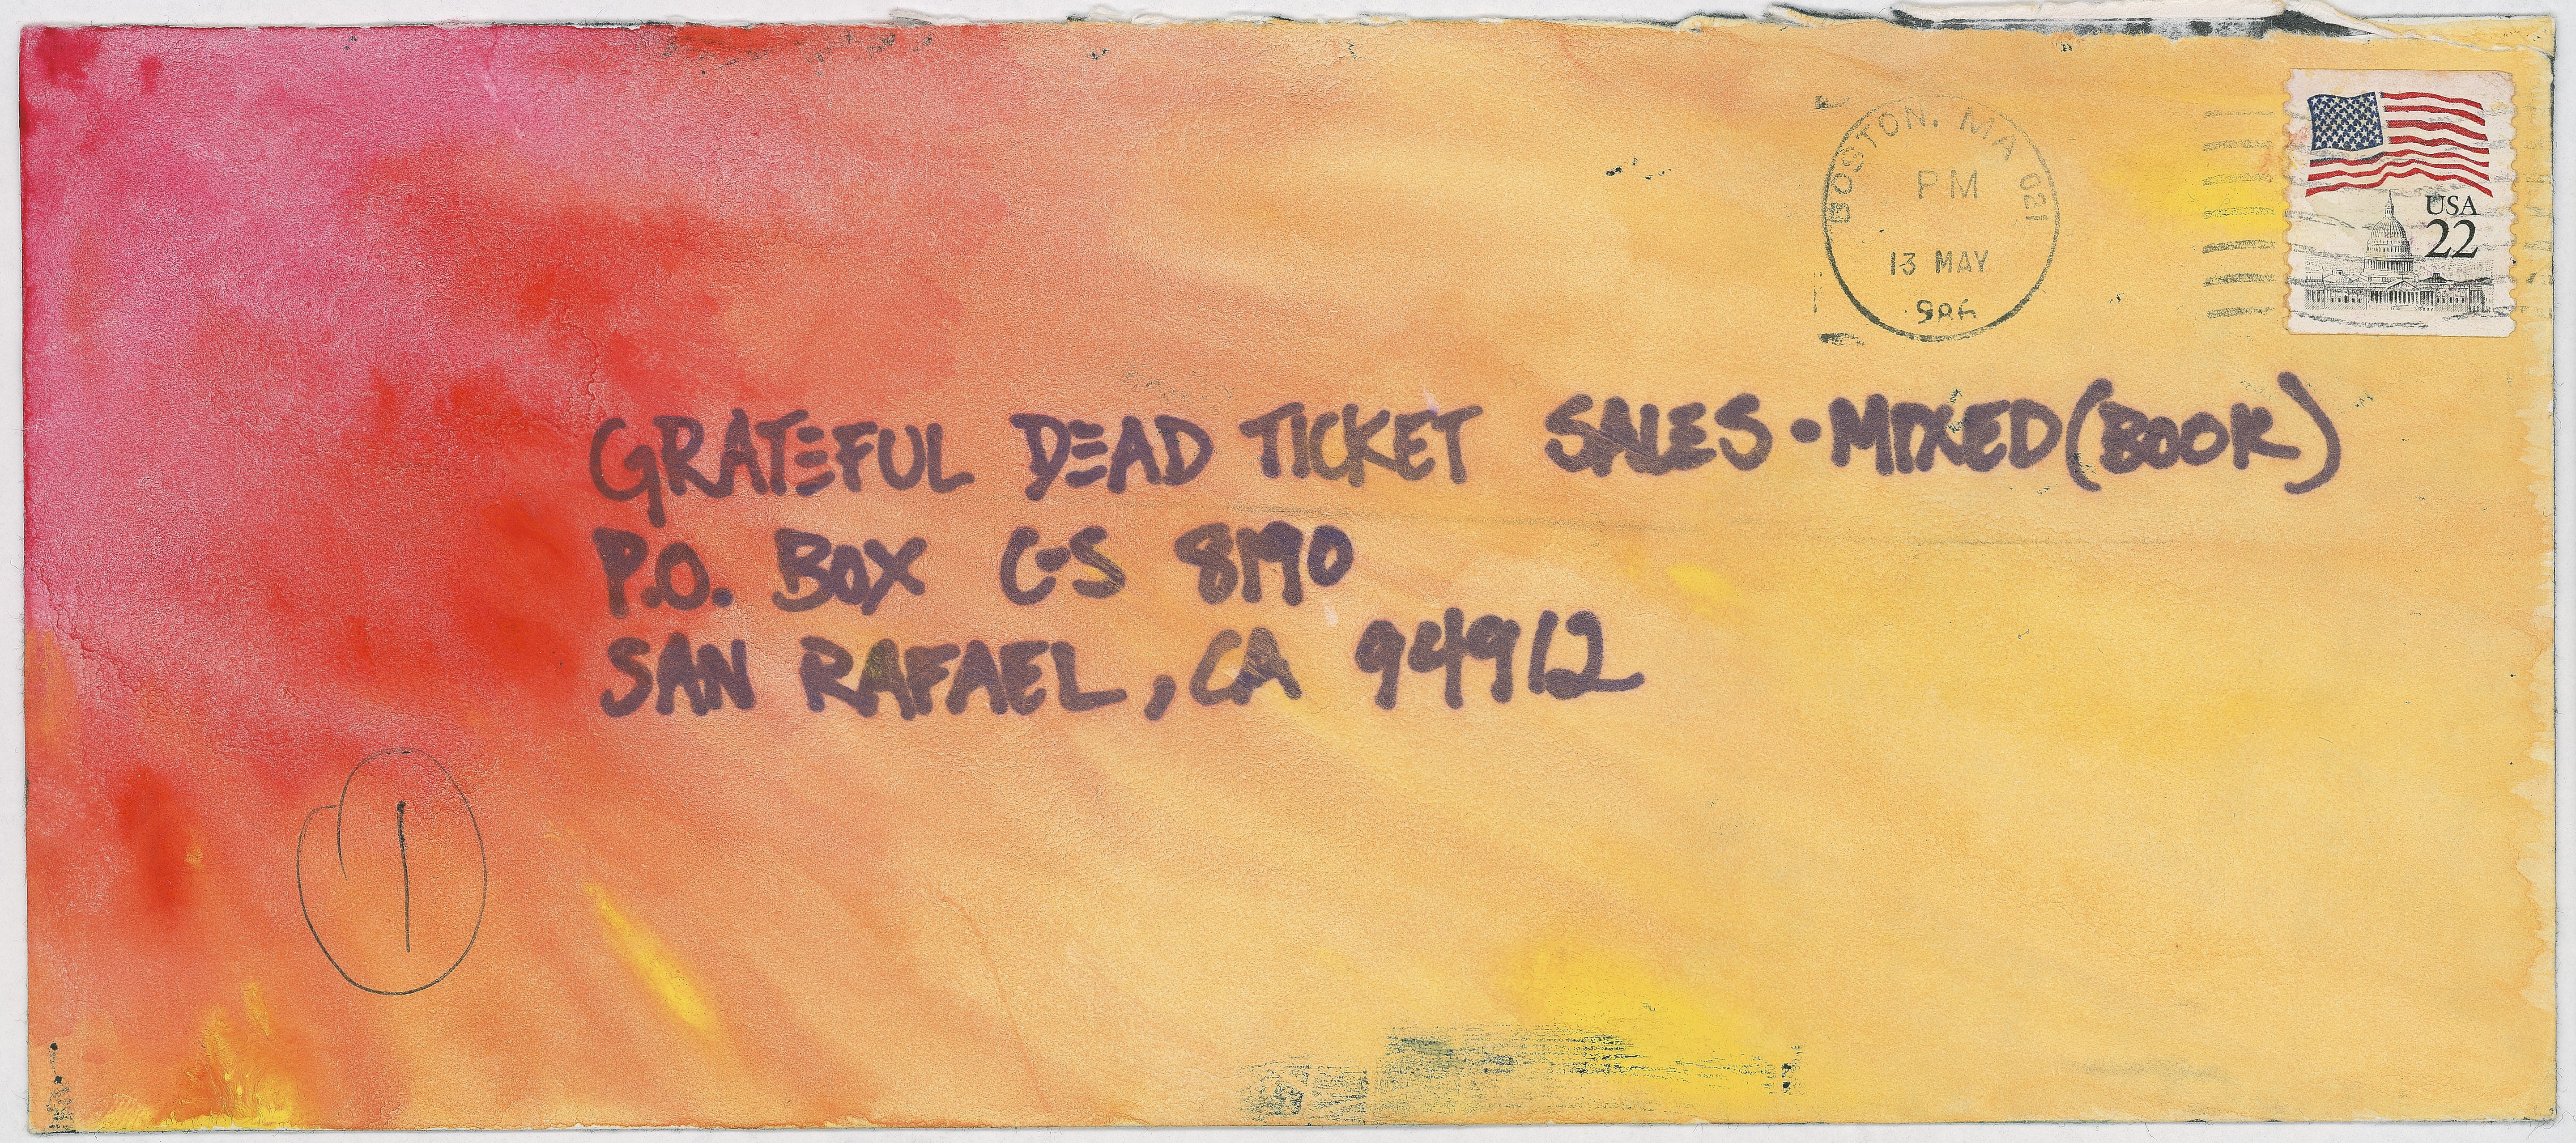 BOSTON, MA 021
PM
13 MAY
USA
22
GRATEFUL DEAD TICKET SALES • MIXED (BOOK)
P.O. BOX C-S 8190
SAN RAFAEL, CA 94912
1